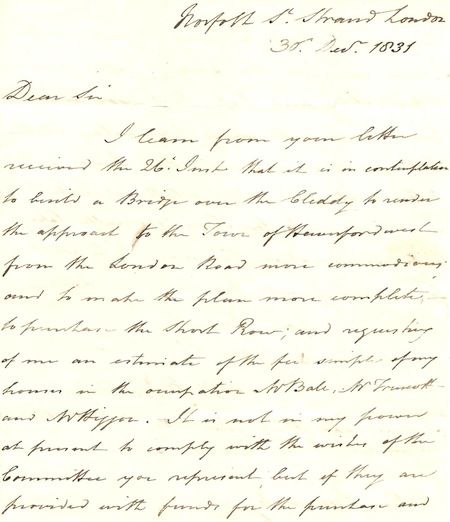 Norfolk St. Strand London
30. Decr. 1831
Dear Sir
I learn from your letter
received the 26t. Inst that it is in contemplation
to build a Bridge over the Cleddy to render
the approach to the Town of Haverfordwest
from the London Road more commodious
and to make the plan more complete,
to purchase the Short Row; and requesting
of me an estimate of the fee simple of my
houses in the occupation Mr Bale, Mr
and Mr Higgon. It is not in my power
at present to comply with the wishes of the
Committee you represent but if they are
provided with funds for the purchase and